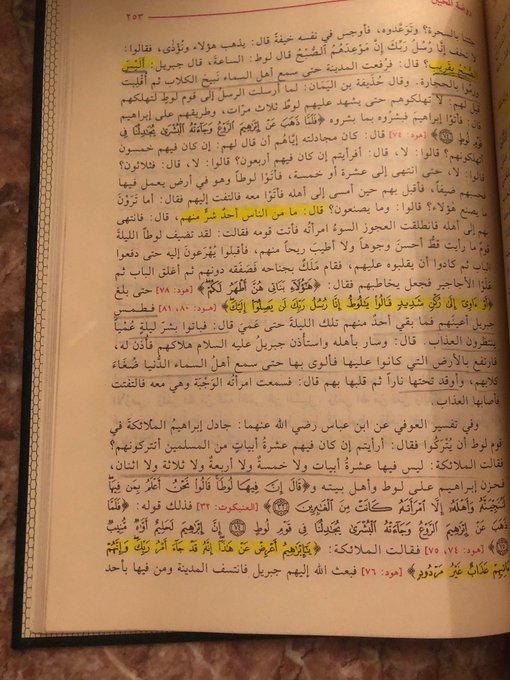 روضة المحبين
٢٥٣
جئتنا بالسحرة؟ وتَوَعَّدوه، فأوجس في نفسه خيفةً قال: يذهب هؤلاء ونُؤذَى، فقالوا:
لا تخف إنَّا رُسُلُ رَبِّكَ إنَّ مَوْعِدَهُمُ الصُّبْحُ قال لوط: الساعةَ، قال جبريل: أَلَيْسَ
الصُّبْحُ بِقَرِيبٍ؟ قال: فرُفعت المدينة حتى سمع أهل السماء نَبيحَ الكلاب ثم أُقلبت
ورُموا بالحجارة. وقال حُذَيفة بن اليَمَان: لما أُرسلت الرسلُ إلى قوم لوطٍ لتهلكهم
قيل لهم: لا تُهلكوهم حتى يشهد عليهم لوطٌ ثلاثَ مرَّات، وطريقهم على إبراهيم
قال: فأتَوْا إبراهيمَ فبشروه بما بشروه ﴿فَلَمَّا ذَهَبَ عَنْ إِبْرَٰهِيمَ ٱلرَّوْعُ وَجَآءَتْهُ ٱلْبُشْرَىٰ يُجَٰدِلُنَا فِى
قَوْمِ لُوطٍ ﴿٧٤﴾﴾ [هود: ٧٤] قال: كان مجادلته إيَّاهُم أن قال لهم: إن كان فيهم خمسون
أتهلكونهم؟ قالوا: لا، قال: أفرأيتم إن كان فيهم أربعون؟ قالوا: لا، قال: فثلاثون؟
قالوا: لا، حتى انتهى إلى عشرة أو خمسة، فأتَوْا لوطاً وهو في أرض يعمل فيها
فحسبهم ضيفاً، فأقبل بهم حين أمسى إلى أهله فأتَوْا معه فالتفت إليهم فقال: أما ترَوْنَ
ما يصنع هؤلاء؟ قالوا: وما يصنعون؟ قال: ما من الناس أحدٌ شرٌّ منهم، قال: فانتهى
بهم إلى أهله فانطلقت العجوزُ السوءُ امرأتُه فأتت قومه فقالت: لقد تضيف لوطاً الليلةَ
قومٌ ما رأيت قطُّ أحسنَ وجوهاً ولا أطيبَ ريحاً منهم، فأقبلوا يُهْرَعون إليه حتى دفعوا
البابَ ثم كادوا أن يقلبوه عليهم، فقام مَلَكٌ بجناحه فَصَفَقه دونهم ثم أغلق الباب ثم
علَوُا الأجاجير فجعل يخاطبهم فقال: ﴿هَٰٓؤُلَآءِ بَنَاتِى هُنَّ أَطْهَرُ لَكُمْ﴾ [هود: ٧٨] حتى بلغ
﴿أَوْ ءَاوِىٓ إِلَىٰ رُكْنٍ شَدِيدٍ قَالُوا۟ يَٰلُوطُ إِنَّا رُسُلُ رَبِّكَ لَن يَصِلُوٓا۟ إِلَيْكَ﴾ [هود: ٨٠، ٨١] فطمس
جبريل أعينَهم فما بَقي أحدٌ منهم تلك الليلةَ حتى عَميَ قال: فباتوا بشرِّ ليلةٍ عُمْياً
ينتظرون العذاب. قال: وسار بأهله واستأذن جبريلُ عليه السلام هلاكهم فأذن له،
فارتفع بالأرض التي كانوا عليها فألوى بها حتى سمع أهلُ السماء الدُّنيا ضُغَاءَ
كلابهم، وأوقد تحتها ناراً ثم قلبها بهم قال: فسمعت امرأتُه الوَجْبَةَ وهي معه فالتفتت
فأصابها العذاب.
وفي تفسير العوفي عن ابن عباس رضي الله عنهما: جادل إبراهيمُ الملائكةَ في
قوم لوط أن يُتْرَكوا فقال: أرأيتم إن كان فيهم عشرةُ أبياتٍ من المسلمين أتتركونهم؟
فقالت الملائكة: ليس فيها عشرةُ أبيات ولا خمسةٌ ولا أربعةٌ ولا ثلاثة ولا اثنان،
فحزن إبراهيم على لوط وأهل بيته و﴿قَالَ إِنَّ فِيهَا لُوطًا قَالُوا۟ نَحْنُ أَعْلَمُ بِمَن فِيهَا
لَنُنَجِّيَنَّهُۥ وَأَهْلَهُۥٓ إِلَّا ٱمْرَأَتَهُۥ كَانَتْ مِنَ ٱلْغَٰبِرِينَ ﴿٣٢﴾﴾ [العنكبوت: ٣٢] فذلك قوله: ﴿فَلَمَّا
ذَهَبَ عَنْ إِبْرَٰهِيمَ ٱلرَّوْعُ وَجَآءَتْهُ ٱلْبُشْرَىٰ يُجَٰدِلُنَا فِى قَوْمِ لُوطٍ ﴿٧٤﴾ إِنَّ إِبْرَٰهِيمَ لَحَلِيمٌ أَوَّٰهٌ مُّنِيبٌ
﴿٧٥﴾﴾ [هود: ٧٤، ٧٥] فقالت الملائكة: ﴿يَٰٓإِبْرَٰهِيمُ أَعْرِضْ عَنْ هَٰذَآ إِنَّهُۥ قَدْ جَآءَ أَمْرُ رَبِّكَ وَإِنَّهُمْ
ءَاتِيهِمْ عَذَابٌ غَيْرُ مَرْدُودٍ﴾ [هود: ٧٦] فبعث الله إليهم جبريل فانتسف المدينة ومن فيها بأحد